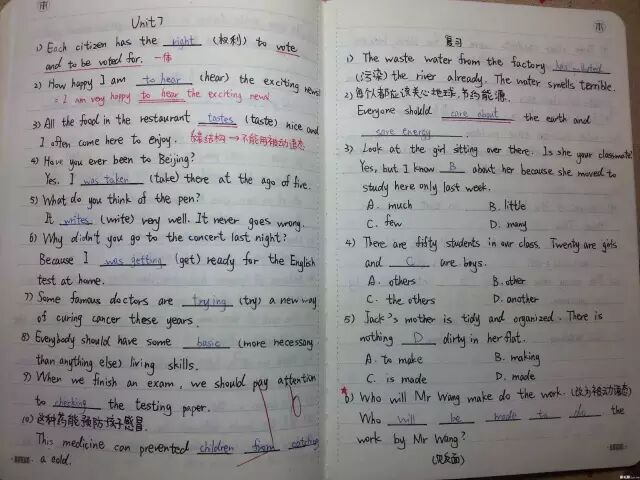 Unit 7
1) Each citizen has the right (权利) to vote
and to be voted for. 一体
2) How happy I am to hear (hear) the exciting news!
= I am very happy to hear the exciting news
3) All the food in the restaurant tastes (taste) nice and
I often come here to enjoy. 系结构→不能用被动语态
4) Have you ever been to Beijing?
Yes. I was taken (take) there at the age of five.
5) What do you think of the pen?
It writes (write) very well. It never goes wrong.
6) Why didn't you go to the concert last night?
Because I was getting (get) ready for the English
test at home.
7) Some famous doctors are trying (try) a new way
of curing cancer these years.
8) Everybody should have some basic (more necessary
than anything else) living skills.
9) When we finish an exam, we should pay attention
to checking the testing paper.
10) 这种药能预防孩子感冒.
This medicine can prevented children from catching
a cold.
复习
1) The waste water from the factory has polluted
(污染) the river already. The water smells terrible.
2) 每个人都应该关心地球,节约能源.
Everyone should care about the earth and
save energy
3) Look at the girl sitting over there. Is she your classmate?
Yes, but I know B about her because she moved to
study here only last week.
A. much B. little
C. few D. many
4) There are fifty students in our class. Twenty are girls
and C are boys.
A. others B. other
C. the others D. another
5) Jack's mother is tidy and organized. There is
nothing D dirty in her flat.
A. to make B. making
C. is made D. made
6) Who will Mr Wang make do the work. (改为被动语态)
Who will be made to do the
work by Mr Wang?
(见反面)